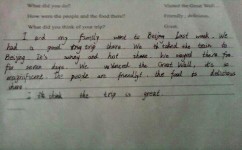 What did you do?
How were the people and the food there?
What did you think of your trip?
Visited the Great Wall...
Friendly, delicious.
Great.
I and my family went to Beijing last week. We
had a good trip there. We took the train to
Beijing. It's and hot there. We stayed there for
for seven days. We visited the Great Wall, it's so
magnificent. The people are friendly! the food so delicious
there.
I think the trip is great.